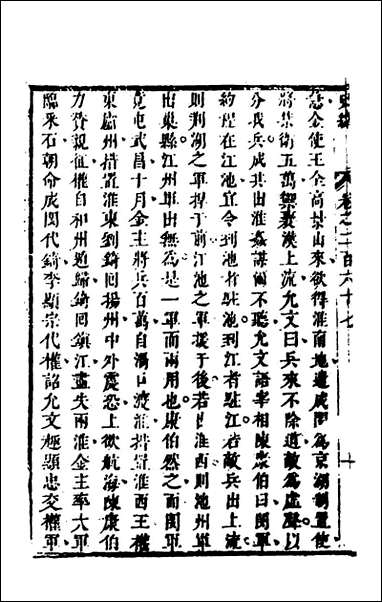 史纂 卷之二百六十七 十
意金使王全高景山來欲得淮南地遣成閔為京湖制置使
將禁衛五萬禦襄漢上流允文曰兵來不除道敵為虛聲以
分我兵成其出淮姦謀爾不聽允文語宰相陳康伯曰閔軍
約程在江池宜令到池者駐池到江者駐江若敵兵出上流
則荆湖之軍捍于前江池之軍援于後若出淮西則池州軍
出巢縣江州軍出無為是一軍而兩用也康伯然之而閔軍
竟屯武昌十月金主將兵百萬自渦口渡淮措置淮西王權
棄廬州措置淮東劉錡回揚州中外震恐上欲航海陳康伯
力贊親征權自和州遁歸錡回鎮江盡失兩淮金主率大軍
臨采石朝命成閔代錡李顯宗代權詔允文趣顯忠交權軍